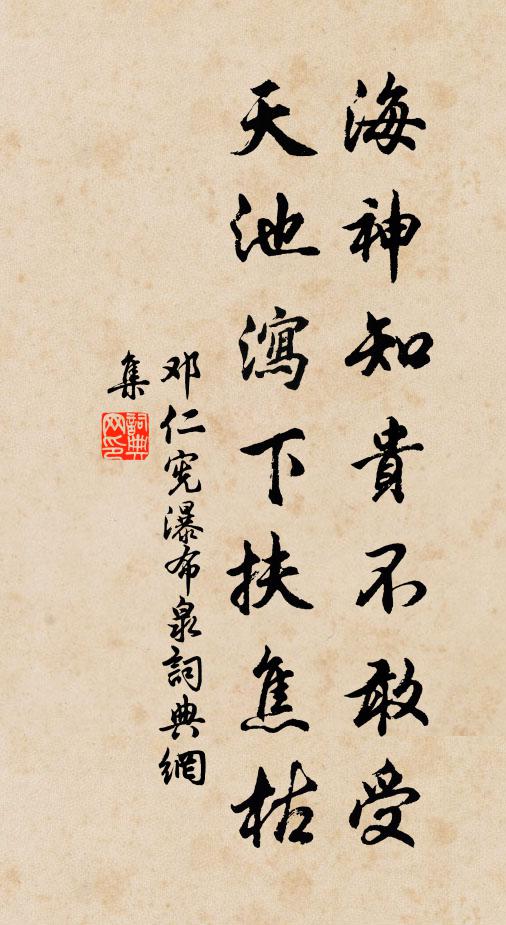 海神知貴不敢受
天池瀉下扶焦枯
邓仁宪瀑布泉詞典網
集
詞典网印